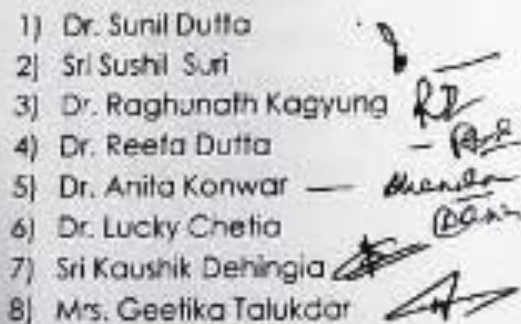 1) Dr. Sunil Dutta
2) Sri Sushil Suri
3) Dr. Raghunath Kagyung
4) Dr. Reeta Dutta
5) Dr. Anita Konwar —
6) Dr. Lucky Chetia
7) Sri Kaushik Dehingia
8) Mrs. Geetika Talukdar